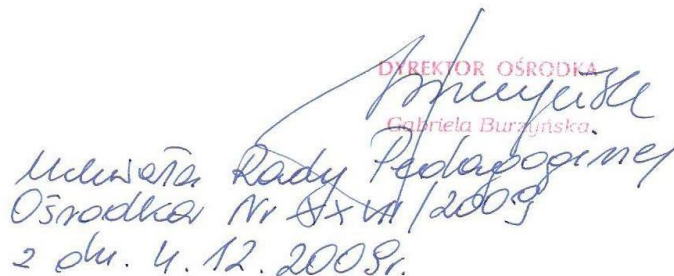 DYREKTOR OŚRODKA
Gabriela Burzyńska
Uchwała Rady Pedagogicznej
Ośrodka Nr /2009
z dn. 4.12.2009r.